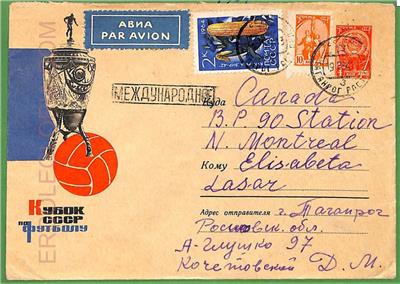 АВИА
PAR AVION
2К
1964
ПОЧТА
СССР
10
МЕЖДУНАРОДНОЕ
Куда Canada
B.P. 90 Station
N. Montreal
Кому Elisabeta
Lasar
Адрес отправителя г. Таганрог
Ростовск. обл.
А-Глушко 97
Кочетовский Д. М.
КУБОК
СССР
по
ФУТБОЛУ